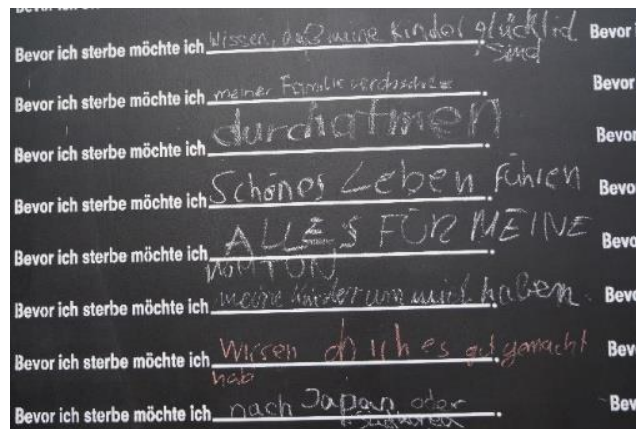 Bevor ich sterbe möchte ich wissen, daß meine Kinder glücklich Bevor
sind
Bevor ich sterbe möchte ich meiner Familie Bevor
Bevor ich sterbe möchte ich durchatmen Bevor
Bevor ich sterbe möchte ich Schönes Leben führen Bevo
Bevor ich sterbe möchte ich ALLES FÜR MEINE Bevo
Bevor ich sterbe möchte ich meine Kinder um mich haben. Bevo
Bevor ich sterbe möchte ich Wissen ob ich es gut gemacht Bev
hab
Bevor ich sterbe möchte ich nach Japan oder Bev
Südkorea